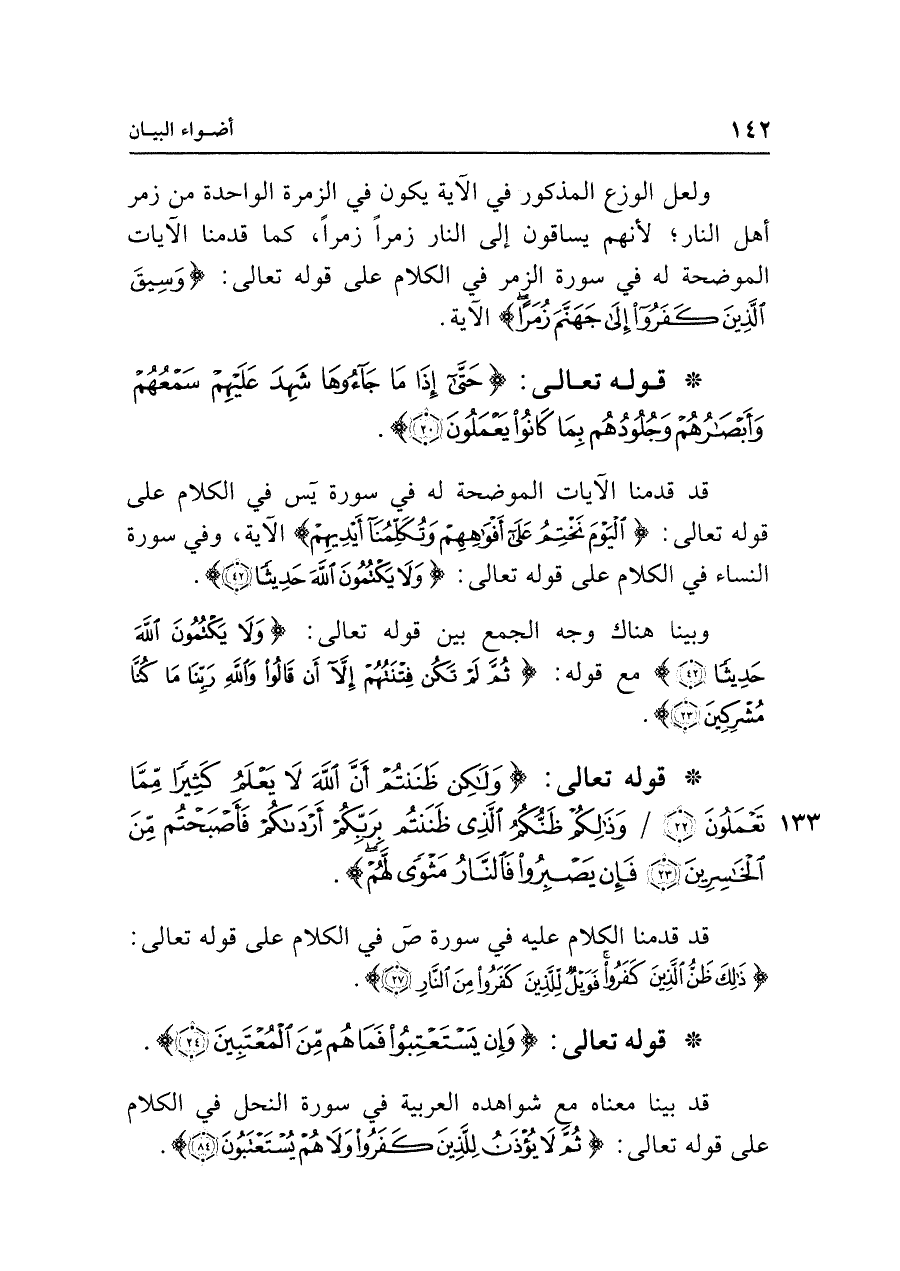 ١٤٢ أضـواء البيـان
ولعل الوزع المذكور في الآية يكون في الزمرة الواحدة من زمر
أهل النار؛ لأنهم يساقون إلى النار زمراً زمراً، كما قدمنا الآيات
الموضحة له في سورة الزمر في الكلام على قوله تعالى: ﴿وَسِيقَ
ٱلَّذِينَ كَفَرُوٓا۟ إِلَىٰ جَهَنَّمَ زُمَرًاۖ﴾ الآية.
* قـولـه تعـالـى: ﴿حَتَّىٰٓ إِذَا مَا جَآءُوهَا شَهِدَ عَلَيْهِمْ سَمْعُهُمْ
وَأَبْصَٰرُهُمْ وَجُلُودُهُم بِمَا كَانُوا۟ يَعْمَلُونَ ۝٢٠﴾.
قد قدمنا الآيات الموضحة له في سورة يۤس في الكلام على
قوله تعالى: ﴿ٱلْيَوْمَ نَخْتِمُ عَلَىٰٓ أَفْوَٰهِهِمْ وَتُكَلِّمُنَآ أَيْدِيهِمْ﴾ الآية، وفي سورة
النساء في الكلام على قوله تعالى: ﴿وَلَا يَكْتُمُونَ ٱللَّهَ حَدِيثًا ۝٤٢﴾.
وبينا هناك وجه الجمع بين قوله تعالى: ﴿وَلَا يَكْتُمُونَ ٱللَّهَ
حَدِيثًا ۝٤٢﴾ مع قوله: ﴿ثُمَّ لَمْ تَكُن فِتْنَتُهُمْ إِلَّآ أَن قَالُوا۟ وَٱللَّهِ رَبِّنَا مَا كُنَّا
مُشْرِكِينَ ۝٢٣﴾.
* قوله تعالى: ﴿وَلَٰكِن ظَنَنتُمْ أَنَّ ٱللَّهَ لَا يَعْلَمُ كَثِيرًا مِّمَّا
تَعْمَلُونَ ۝٢٢ / وَذَٰلِكُمْ ظَنُّكُمُ ٱلَّذِى ظَنَنتُم بِرَبِّكُمْ أَرْدَىٰكُمْ فَأَصْبَحْتُم مِّنَ ١٣٣
ٱلْخَٰسِرِينَ ۝٢٣ فَإِن يَصْبِرُوا۟ فَٱلنَّارُ مَثْوًى لَّهُمْۖ﴾.
قد قدمنا الكلام عليه في سورة صۤ في الكلام على قوله تعالى:
﴿ذَٰلِكَ ظَنُّ ٱلَّذِينَ كَفَرُوا۟ۚ فَوَيْلٌ لِّلَّذِينَ كَفَرُوا۟ مِنَ ٱلنَّارِ ۝٢٧﴾.
* قوله تعالى: ﴿وَإِن يَسْتَعْتِبُوا۟ فَمَا هُم مِّنَ ٱلْمُعْتَبِينَ ۝٢٤﴾.
قد بينا معناه مع شواهده العربية في سورة النحل في الكلام
على قوله تعالى: ﴿ثُمَّ لَا يُؤْذَنُ لِلَّذِينَ كَفَرُوا۟ وَلَا هُمْ يُسْتَعْتَبُونَ ۝٨٤﴾.